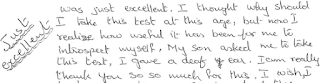 Just excellent
was just excellent. I thought why should
I take this test at this age, but now I
realise how useful it has been for me to
introspect myself. My son asked me to take
this test, I gave a deaf ear. I am really
thank you so so much for this. I wish, I